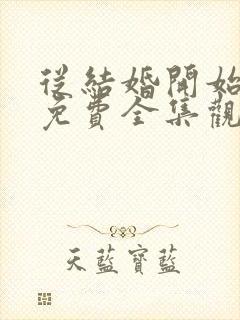 從結婚開始
免費全集觀
天藍寶藍